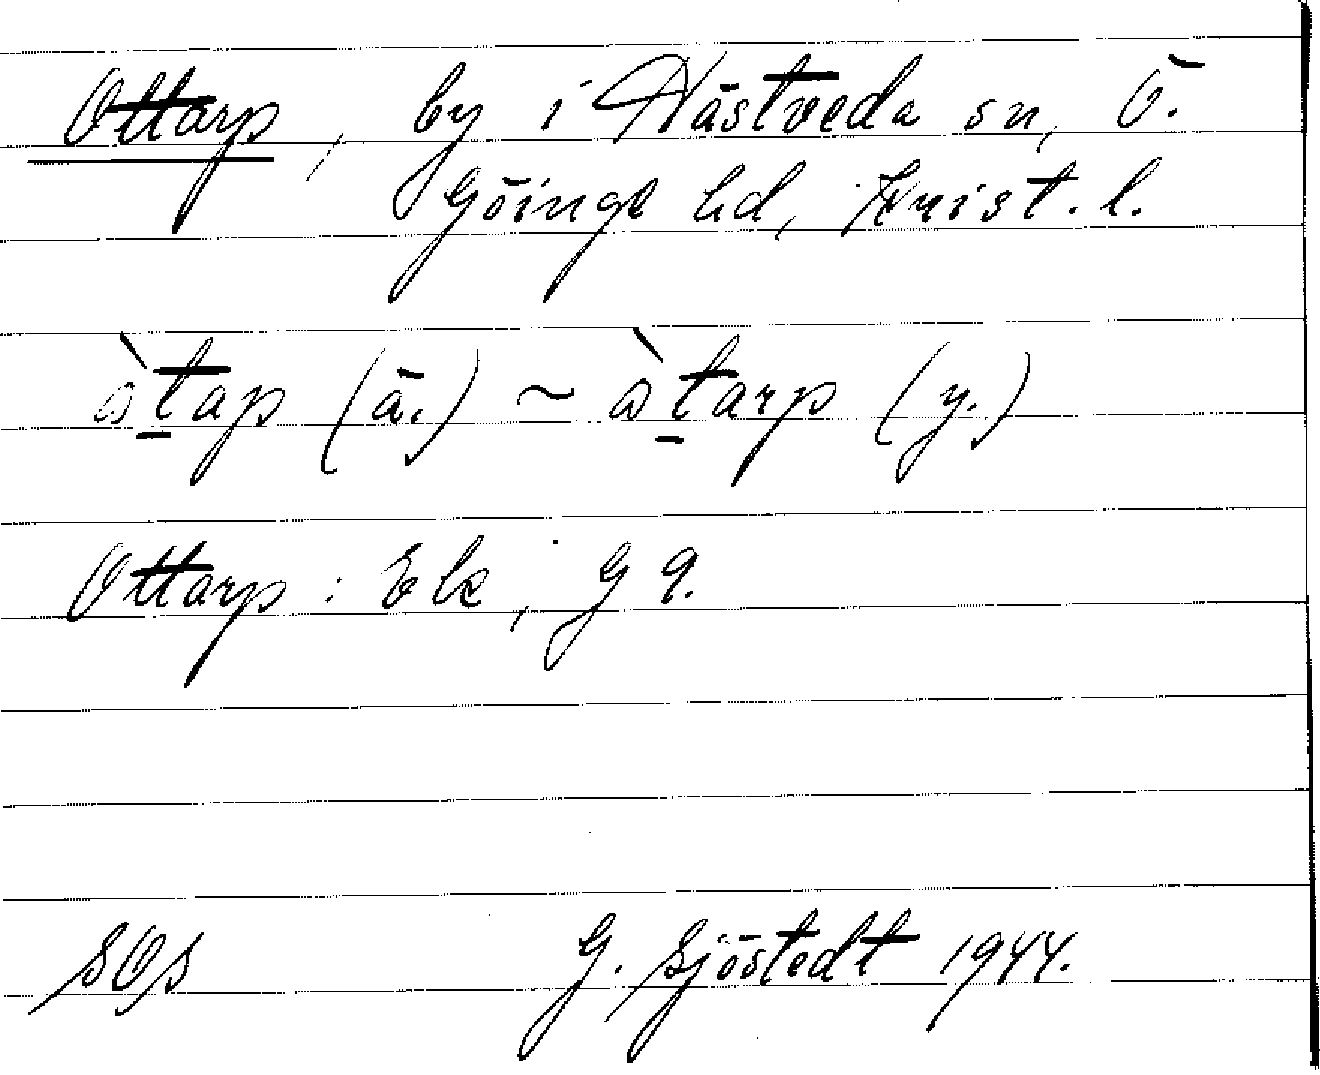 Ottarp, by i Nästveda sn, Ö.
Göinge hd, Krist. l.
åt̲ap (ä.) ~ åt̲arp (y.)
Ottarp: Ek, G 9.
SOS G. Sjöstedt 1944.